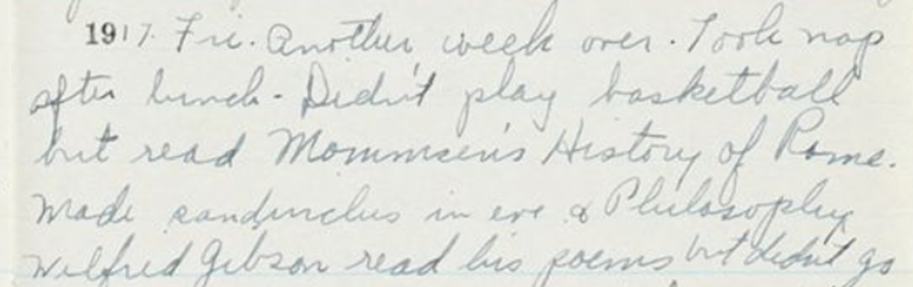 1917. Fri. Another week over. Took nap
after lunch - Didn't play basketball
but read Mommsen's History of Rome.
Made sandwiches in eve & Philosophy
Wilfred Gibson read his poems but didn't go